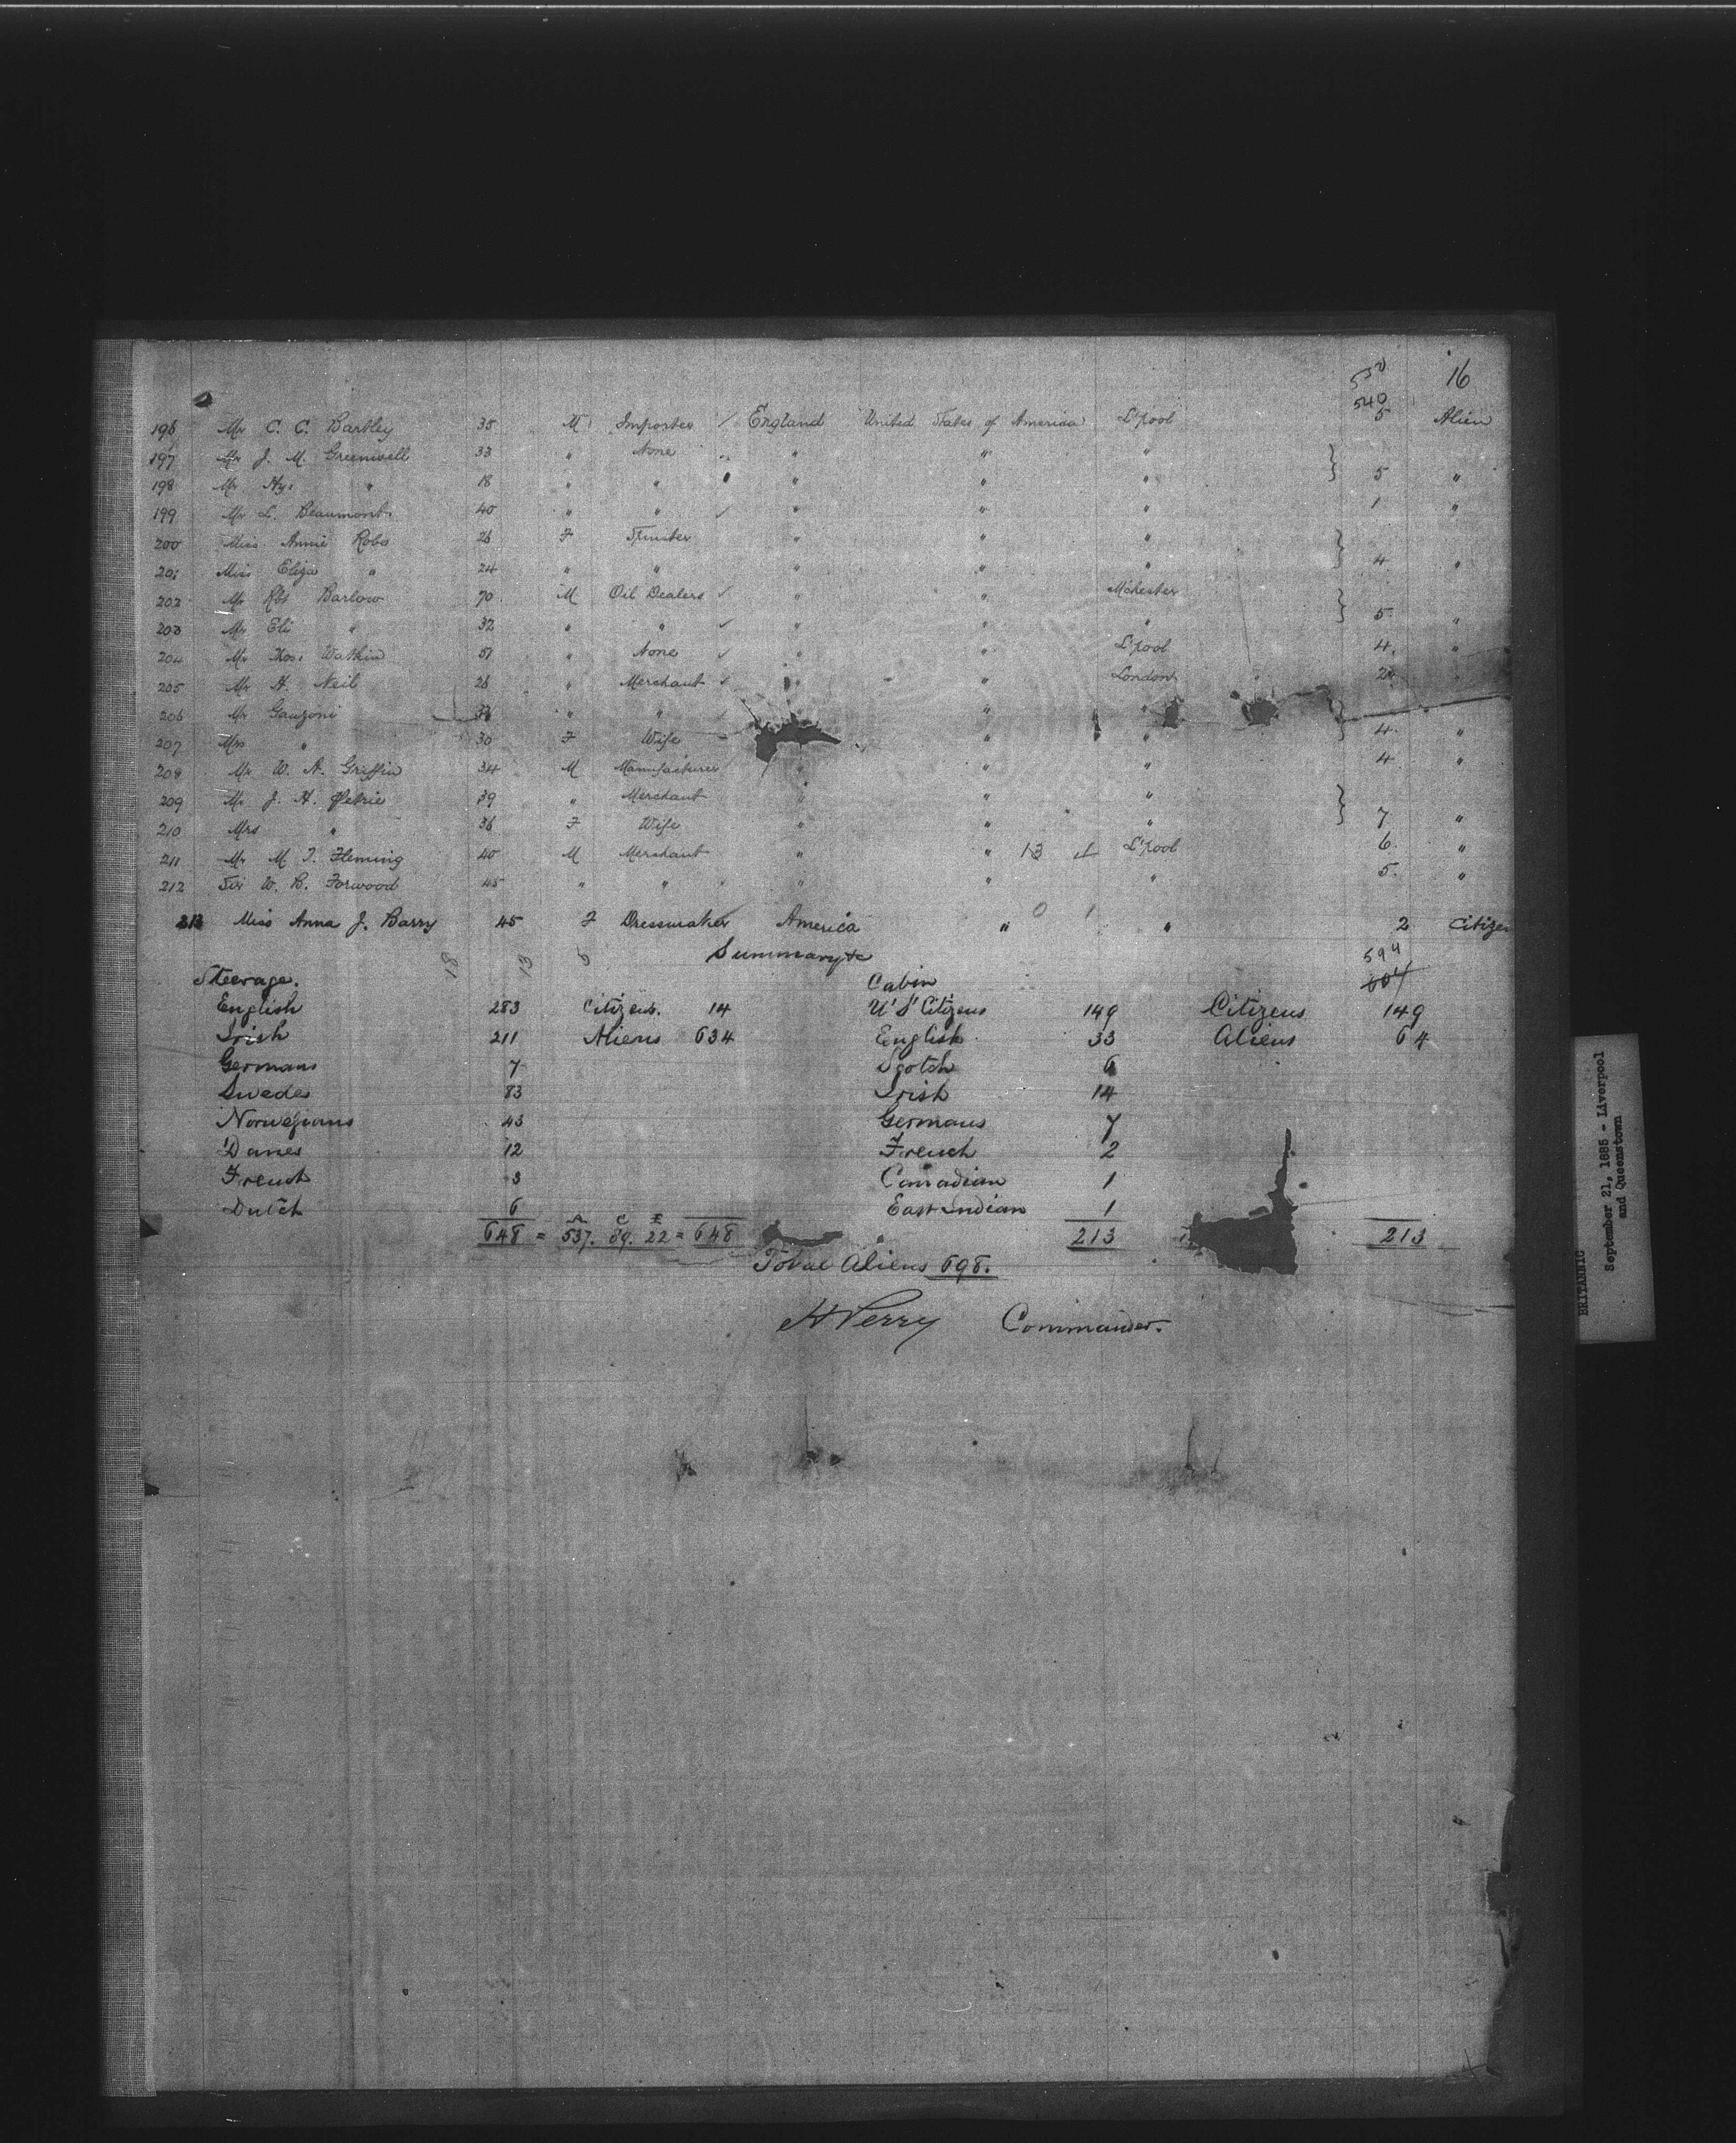 16
540
196 Mr C. C. Bartley 35 M Importer ✓ England United States of America L'pool 5 Alien
197 Mr J. M. Greenwell 33 " None " " " "
198 Mr Hy: " 18 " " " " " 5 "
199 Mr L. Beaumont 40 " " ✓ " " " 1 "
200 Miss Annie Robs 26 F Spinster " " "
201 Miss Eliza " 24 " " " " " 4 "
202 Mr Rbt Barlow 70 M Oil Dealers ✓ " " M'chester
203 Mr Eli " 32 " " ✓ " " " 5 "
204 Mr Thos: Watkin 51 " None ✓ " " L'pool 4 "
205 Mr H. Neil 26 " Merchant ✓ " " London 2
206 Mr Ganzoni " " " "
207 Mrs " 30 F Wife " " 4 "
208 Mr W. A. Griffin 34 M Manufacturer " " " 4 "
209 Mr J. H. Petrie 39 " Merchant " " "
210 Mrs " 36 F Wife " " " 7 "
211 Mr M. J. Fleming 40 M Merchant " " 13 L'pool 6 "
212 Sir W. B. Forwood 45 " " " " " 5 "
213 Miss Anna J. Barry 45 F Dressmaker America " 0 1 " 2 Citizen
18 13 Summary 594
Steerage. Cabin
English 283 Citizens. 14 U.S. Citizens 149 Citizens 149
Irish 211 Aliens 634 English 33 Aliens 64
Germans 7 Scotch 6
Swedes 83 Irish 14
Norwegians 43 Germans 7
Danes 12 French 2
French 3 Canadian 1
Dutch 6 East Indian 1
A C I
648 = 537. 89. 22 = 648 213 213
Total Aliens 698.
H Perry Commander.
BRITANNIC
September 21, 1885 - Liverpool
and Queenstown